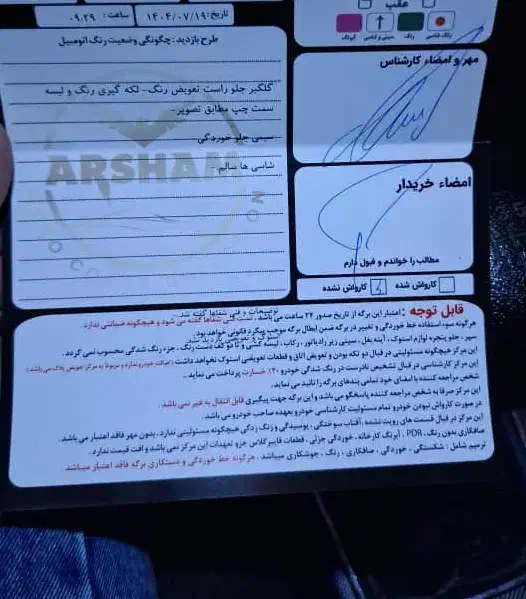 عقب
رنگ شاسی
رنگ
سینی و شاسی
آبرنگ
تاریخ: ۱۴۰۴/۰۷/۱۹
ساعت: ۰۹:۲۹
طرح بازدید: چگونگی وضعیت رنگ اتومبیل
گلگیر جلو راست تعویض رنگ- لکه گیری رنگ و لیسه
سمت چپ مطابق تصویر-
سینی جلو خوردگی
شاسی ها سالم.
ARSHAM
مهر و امضاء کارشناس
امضاء خریدار
مطالب را خواندم و قبول دارم
کارواش شده
کارواش نشده
توضیحات و فنی شفاها گفته شد.
قابل توجه: اعتبار این برگه از تاریخ صدور ۲۴ ساعت می باشد. تست فنی شفاها گفته می شود و هیچگونه ضمانتی ندارد.
هرگونه سوء استفاده خط خوردگی و تغییر در برگه ضمن ابطال برگه موجب پیگرد قانونی خواهد بود.
سپر، جلو پنجره لوازم استوک، آینه بغل، سینی زیر رادیاتور، رکاب، لیسه کشی و تا دو کف دست رنگ، جزء رنگ شدگی محسوب نمی گردد.
این مرکز هیچگونه مسئولیتی در قبال دو تکه بودن و تعویض اتاق و قطعات تعویضی استوک نخواهد داشت
این مرکز کارشناسی در قبال تشخیص نادرست در رنگ شدگی خودرو ۲۰٪ خسارت پرداخت می نماید.
شخص مراجعه کننده با امضای خود تمامی بندهای برگه را تائید می نماید.
این مرکز صرفا به شخص مراجعه کننده پاسخگو می باشد و این برگه جهت پیگیری قابل انتقال به غیر نمی باشد.
در صورت کارواش نبودن خودرو تمام مسئولیت کارشناسی خودرو بعهده صاحب خودرو می باشد.
این مرکز در قبال قسمت های رویت نشده، آفتاب سوختگی، پوسیدگی و زنگ زدگی هیچگونه مسئولیتی ندارد. بدون مهر فاقد اعتبار می باشد.
صافکاری بدون رنگ، PDR، آبرنگ کارخانه، خوردگی جزئی، قطعات فایبرگلاس جزو تعهدات این مرکز نمی باشد و افت قیمت ندارد.
ترمیم شامل: شکستگی، خوردگی، صافکاری، رنگ، جوشکاری میباشد. هرگونه خط خوردگی و دستکاری برگه فاقد اعتبار میباشد.